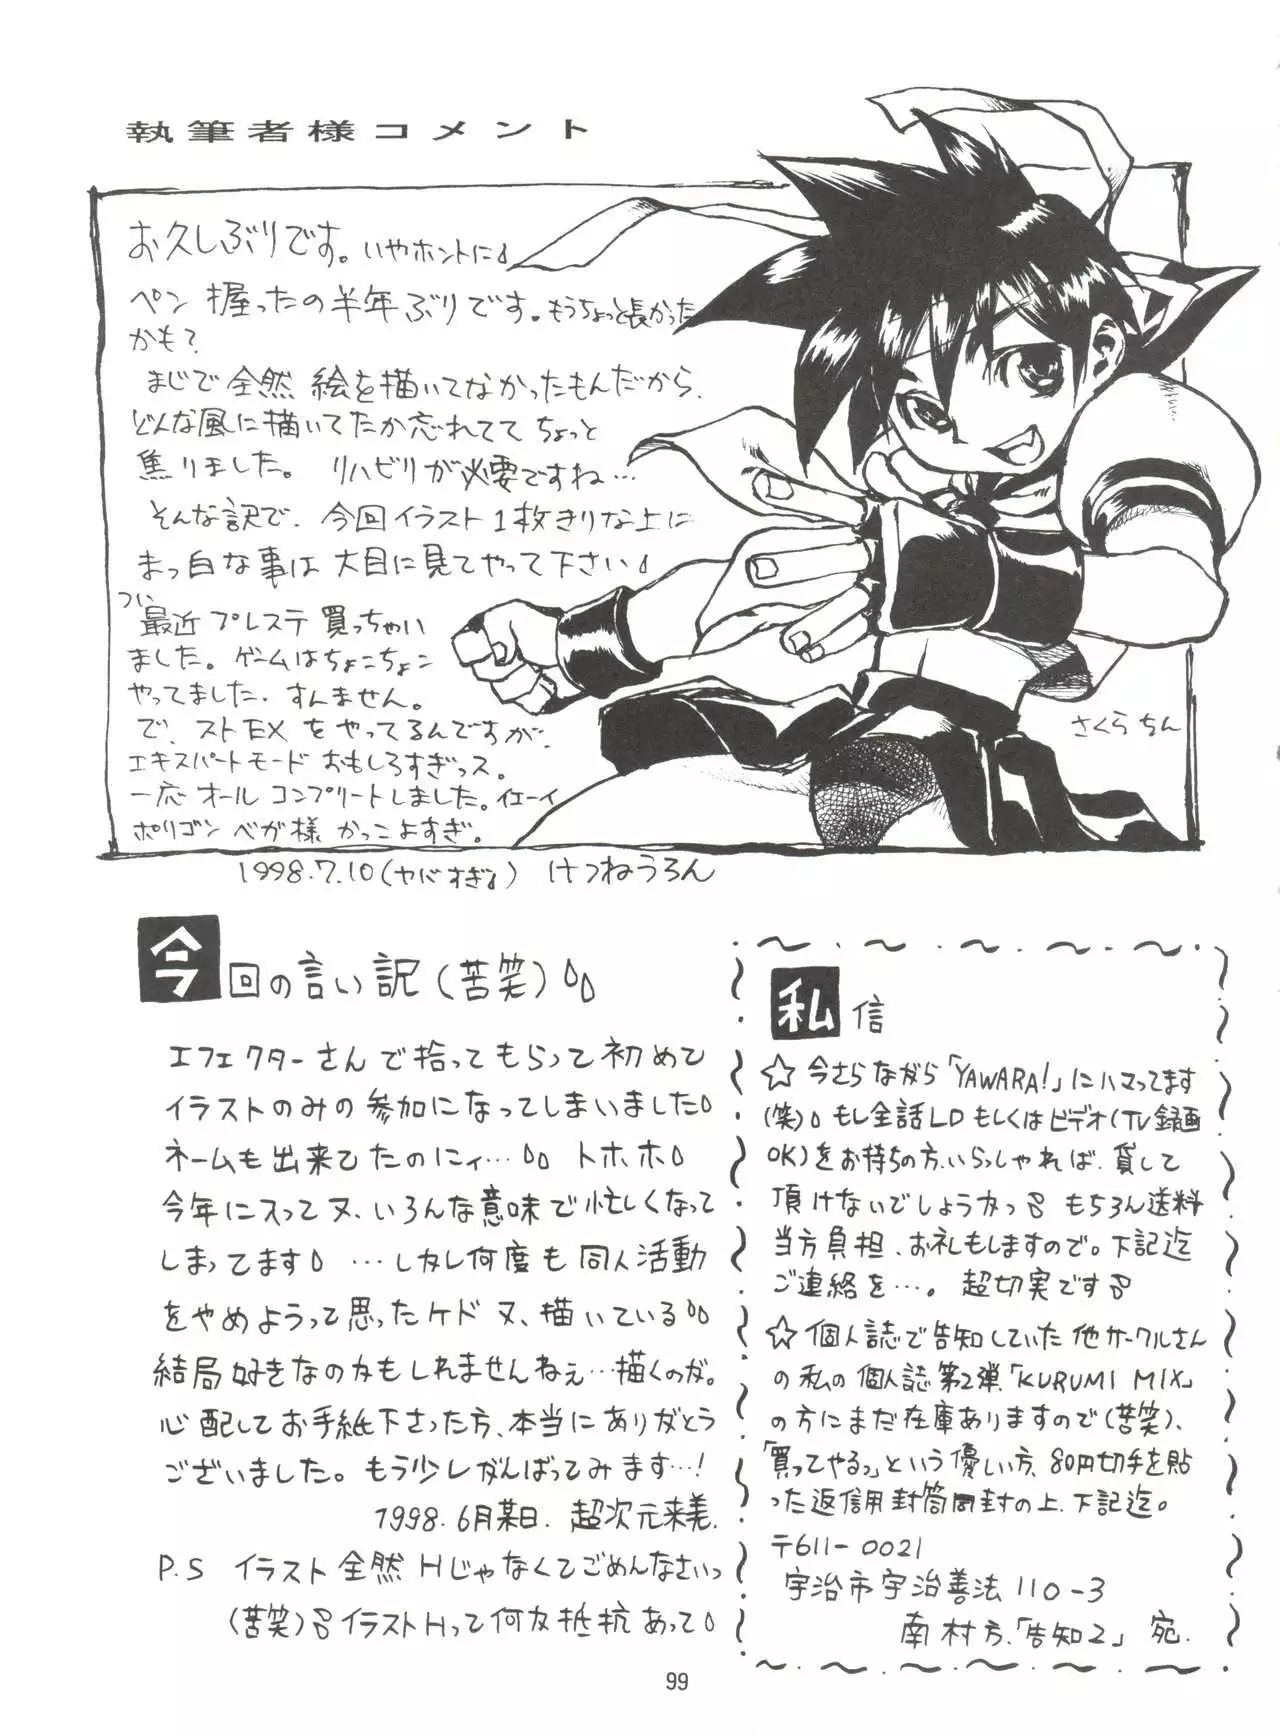 執筆者様コメント
お久しぶりです。いやホントに
ペン握ったの半年ぶりです。もうちょっと長かった
かも?
まじで全然絵を描いてなかったもんだから、
どんな風に描いてたか忘れてて ちょっと
焦りました。 リハビリが必要ですね…
そんな訳で、今回イラスト1枚きりな上に
まっ白な事は大目に見てやって下さい
つい
最近プレステ買っちゃい
ました。ゲームはちょこちょこ
やってました、すんません。
で、ストEXをやってるんですが、
エキスパートモードおもしろすぎっス。
一応オールコンプリートしました。イエーイ
ポリゴンベガ様かっこよすぎ。
さくらちん
1998.7.10(ヤバすぎ) けつねうろん
今回の言い訳(苦笑)
エフェクターさんで拾ってもらって初めて
イラストのみの参加になってしまいました
ネームも出来てたのにィ… トホホ
今年に入って又、いろんな意味で忙しくなって
しまってます …しかし何度も同人活動
をやめようって思ったケド又、描いている
結局好きなのかもしれませんねぇ…描くのが。
心配してお手紙下さった方、本当にありがとう
ございました。もう少しがんばってみます…!
1998.6月某日. 超次元来美.
P.S イラスト全然Hじゃなくてごめんなさいっ
(苦笑) イラストHって何か抵抗あって
私信
☆今さらながら「YAWARA!」にハマってます
(笑) もし全話LDもしくはビデオ(TV録画
OK)をお持ちの方、いらっしゃれば、貸して
頂けないでしょうかっ もちろん送料
当方負担、お礼もしますので。下記迄
ご連絡を…。 超切実です
☆個人誌で告知していた他サークルさん
の私の個人誌第2弾「KURUMI MIX」
の方にまだ在庫ありますので(苦笑)、
「買ってやるっ」という優しい方、80円切手を貼
った返信用封筒同封の上、下記迄。
〒611-0021
宇治市宇治善法110-3
南村方、「告知2」宛.
99